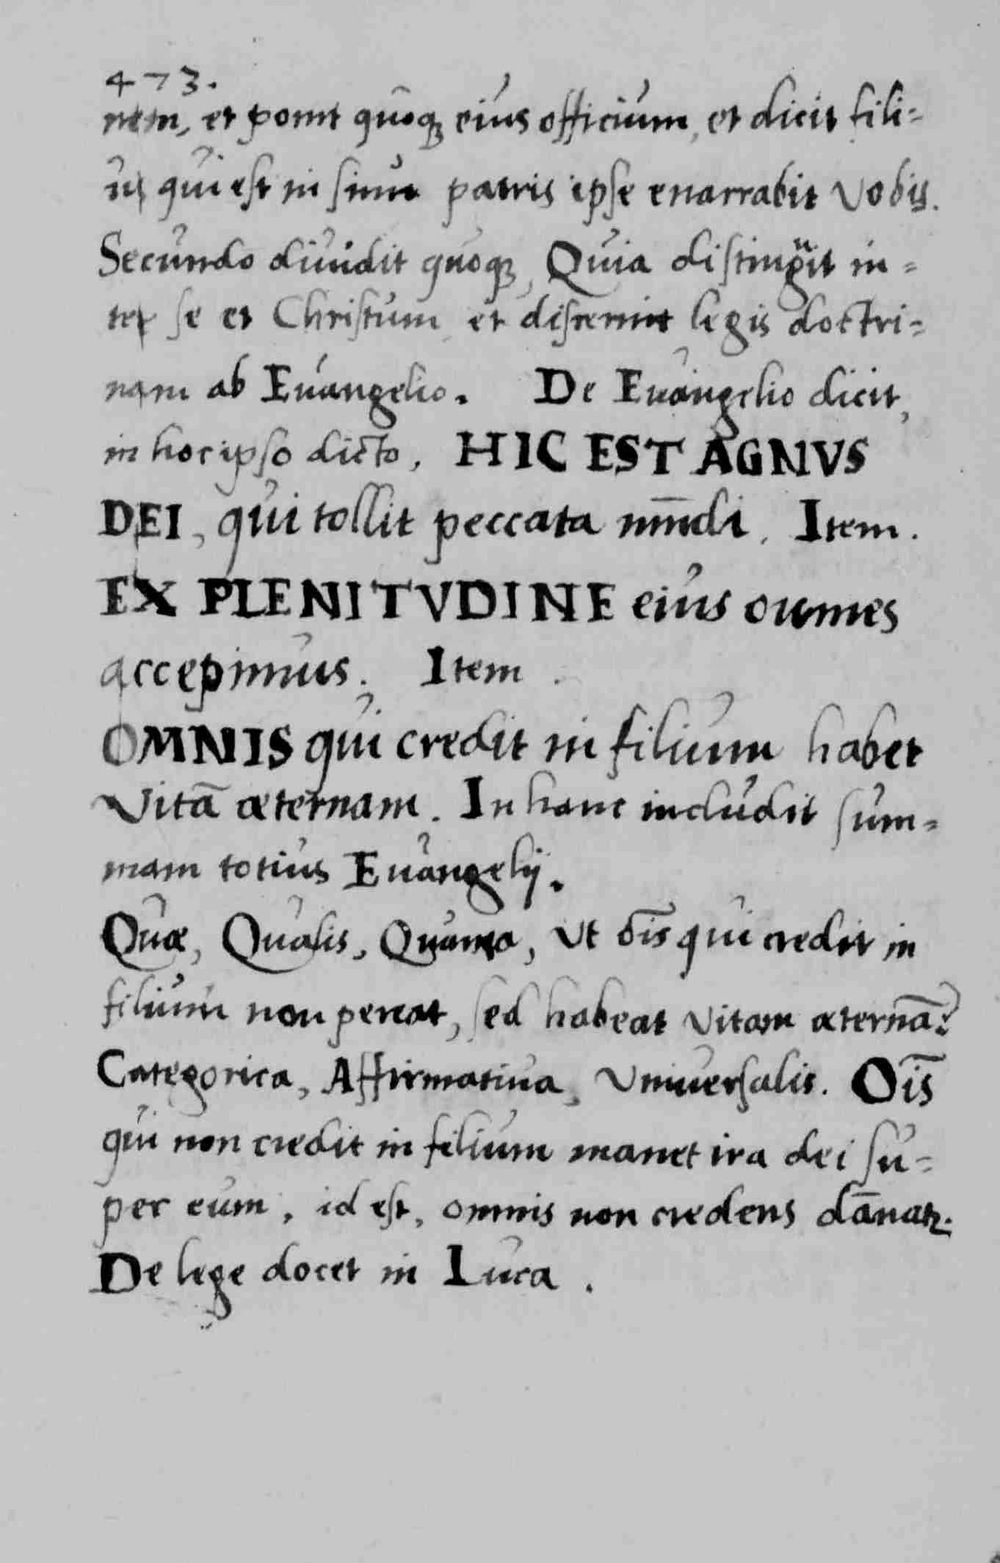 473.
nem, et ponit quoq̃ eius officium, et dicit fili=
us qui est in sinu patris ipse enarrabit vobis.
Secundo diuidit quoq̃, Quia distinguit in=
ter se et Christum et discernit legis doctri=
nam ab Euangelio. De Euangelio dicit,
in hoc ipso dicto, HIC EST AGNVS
DEI, qui tollit peccata mūdi. Item.
EX PLENITVDINE eius oumes
accepimus. Item.
OMNIS qui credit in filium habet
Vitā æternam. In hanc includit sum=
mam totius Euangelij.
Quæ, Qualis, Quanta, Ut oīs qui credit in
filium non pereat, sed habeat vitam æternā?
Categorica, Affirmatiua, Vniuersalis. Oīs
qui non credit in filium manet ira dei su=
per eum, id est, omnis non credens dānatꝛ.
De lege docet in Luca.